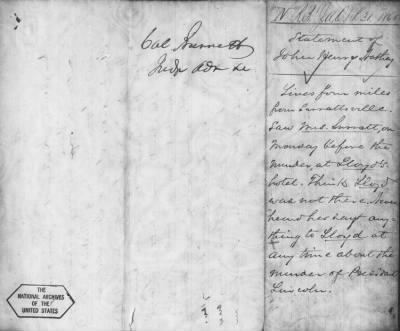 Col Burnett
Judge Adv &c
Statement of
John Henry
Lives four miles
from Surrattsville.
Saw Mrs. Surratt, on
Monday before the
murder, at Lloyd's
hotel. Thinks Lloyd
was not there. Never
heard her say any-
thing to Lloyd at
any time about the
murder of President
Lincoln.
THE
NATIONAL ARCHIVES
OF THE
UNITED STATES